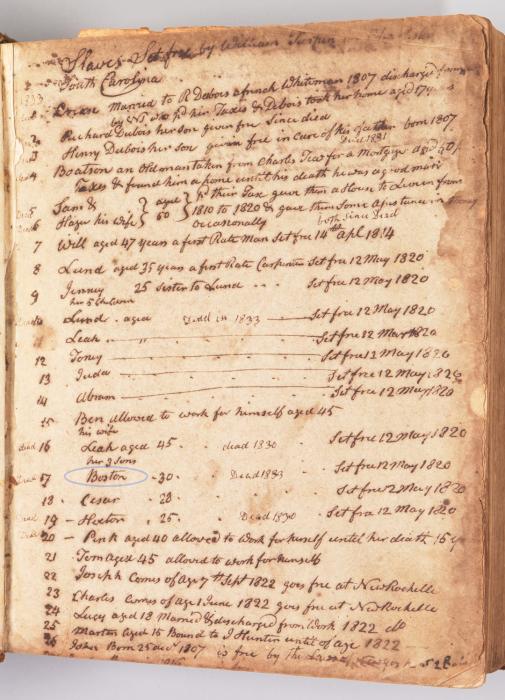 Slaves Set free by William Turpin
South Carolina
1 married to R Dubois a french Whiteman 1807 discharged from
by WT. he pd her Taxes & Debois took her home aged 17
2 Richard Dubois her son given free Since died
3 Henny Dubois her son given free in care of his father born 1807
Died 1831
4 Boatson an Old man taken from Charles Tew for a Mortgage
Taxes & found him a home until his death he was a good man
5 Sam & aged pd their Tax gave them a House to Live in from
6 Hagar his wife 60 1810 to 1820 & gave them Some
occasionally both Since Dead
7 Will aged 47 years a first Rate Man Set free 14th Apl 1814
8 Lund aged 35 years a first Rate Carpenter Set free 12 May 1820
9 Jenney 25 sister to Lund Set free 12 May 1820
her 5 children
10 Lund aged Dead in 1833 Set free 12 May 1820
11 Leah " Set free 12 May 1820
12 Toney Set free 12 May 1820
13 Juda Set free 12 May 1820
14 Abram Set free 12 May 1820
15 Ben allowed to work for himself aged 45
his wife
dead 16 Leah aged 45 dead 1830 Set free 12 May 1820
her 3 Sons
Dead 17 Boston - 30. Dead 1833 Set free 12 May 1820
18. Cesar - 28 Set free 12 May 1820
dead 19 - Hector . 25. Dead 1830 Set free 12 May 1820
20 - Pink aged 40 allowed to work for herself until her death 15 y
21 Tom aged 45 allowed to work for himself
22 Joseph Comes of age 7th Sept 1822 goes free at New Rochelle
23 Charles comes of age 1 June 1822 goes free at New Rochelle
24 Lucy aged 18 Married & discharged from Work 1822
25 Martin aged 15 Bound to J Hunter until of age 1822
26 Born 25 decr 1807 is free by the Laws